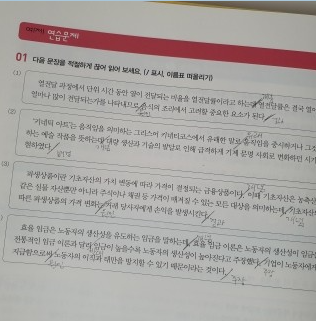 연습문제
01 다음 문장을 적절하게 끊어 읽어 보세요. (/ 표시, 이름표 떠올리기)
(1)
열전달 과정에서 단위 시간 동안 열이 전달되는 비율을 열전달률이라고 하는데 열전달률은 결국 열이
얼마나 많이 전달되는가를 나타내므로 음식의 조리에서 고려할 중요한 요소가 된다.
(2)
'키네틱 아트'는 움직임을 의미하는 그리스어 키네티코스에서 유래한 말로 움직임을 중시하거나 그것을
하는 예술 작품을 뜻하는데 대량 생산과 기술의 발달로 인해 급격하게 기계 문명 사회로 변화하던 시기
현하였다.
(3)
파생상품이란 기초자산의 가치 변동에 따라 가격이 결정되는 금융상품이다. 이때 기초자산은 농축산
같은 실물 자산뿐만 아니라 주식이나 채권 등 가격이 매겨질 수 있는 모든 대상을 의미하는데, 기초자산
따른 파생상품의 가격 변화는 거래 당사자에게 손익을 발생시킨다.
효율 임금은 노동자의 생산성을 유도하는 임금을 말하는데 효율 임금 이론은 노동자의 생산성이 임금
전통적인 임금 이론과 달리 임금이 높을수록 노동자의 생산성이 높아진다고 주장했다. 기업이 노동자에게
지급함으로써 노동자의 이직과 태만을 방지할 수 있기 때문이라는 것이다.